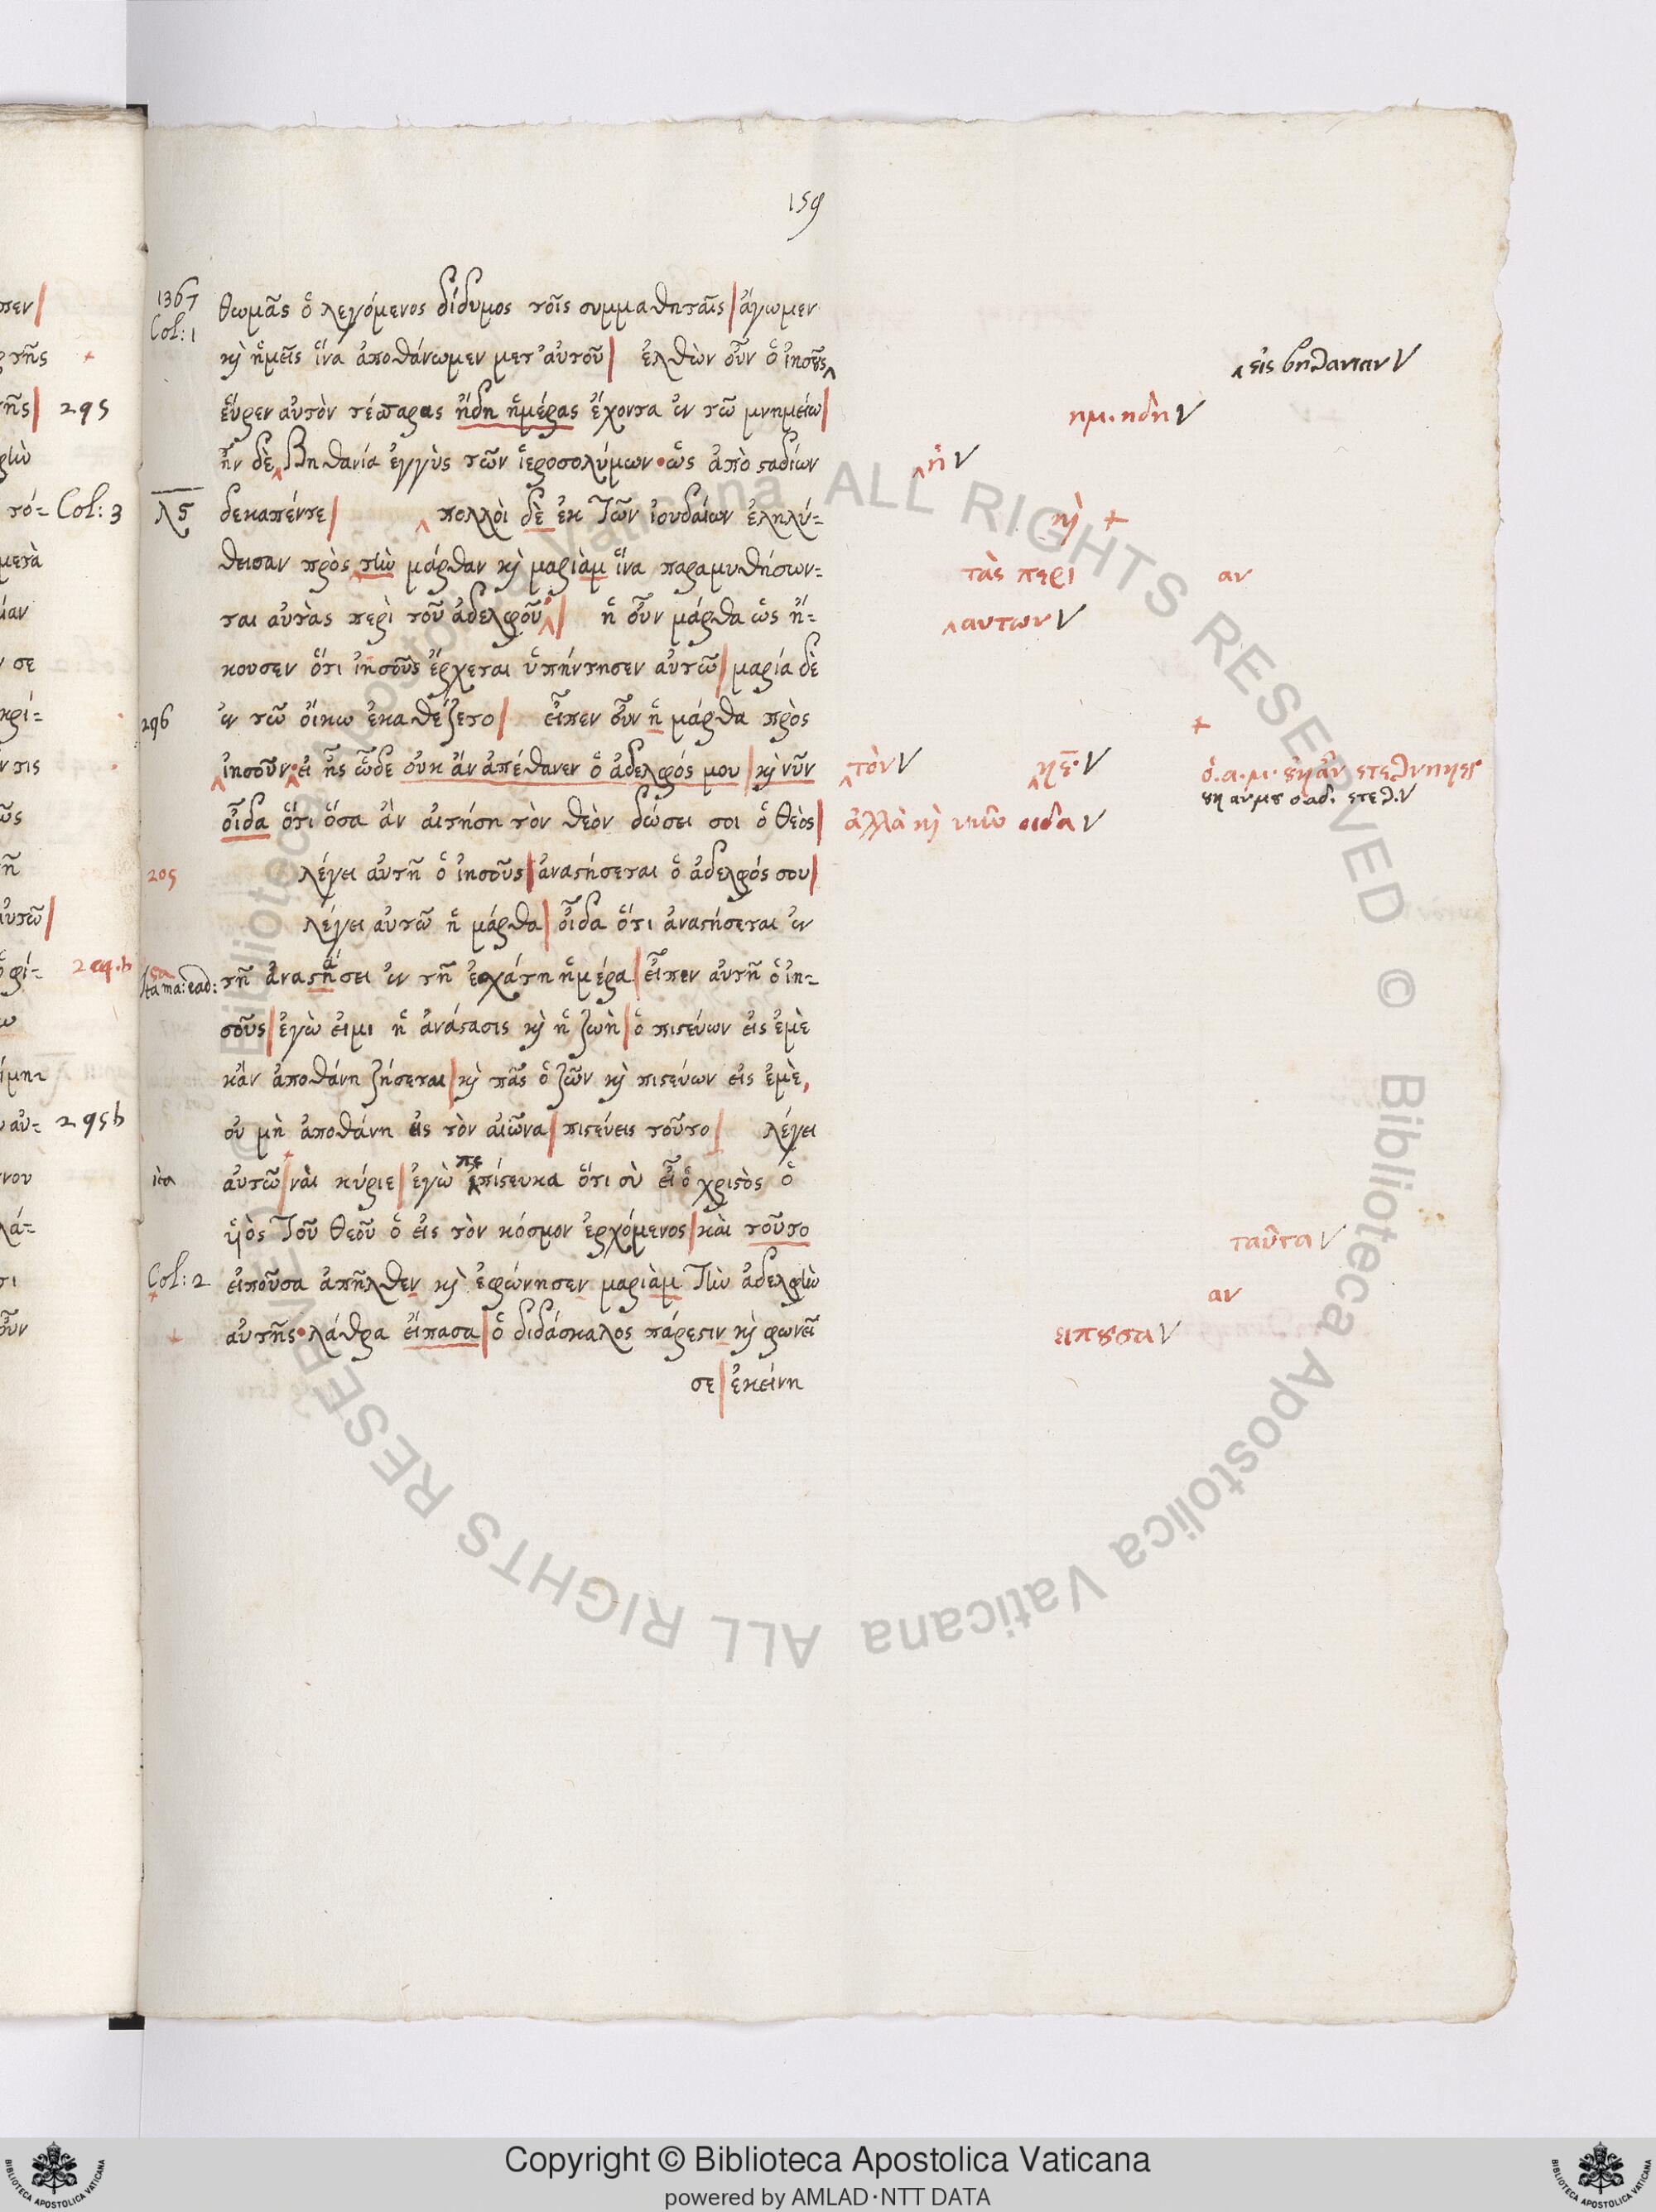 159
1367
Col: 1
θωμᾶς ὁ λεγόμενος δίδυμος τοῖς συμμαθηταῖς | ἄγωμεν
κὶ ἡμεῖς ἵνα ἀποθάνωμεν μετ' αὐτοῦ | ἐλθὼν οὖν ὁ ἰησοῦς ‸
‸ εις βηθανιαν V
εὗρεν αὐτὸν τέσσαρας ἤδη ἡμέρας ἔχοντα ἐν τῶ μνημείω |
ημ. ηδη V
ἦν δὲ ‸ Βηθανία ἐγγὺς τῶν ἱεροσολύμων • ὡς ἀπὸ σταδίων
‸ ἡ V
λς
δεκαπέντε | ‸ πολλοὶ δὲ ἐκ τῶν ἰουδαίων ἐληλύ=
κὶ +
θεισαν πρὸς ‸ τὴν μάρθαν κὶ μαριὰμ ἵνα παραμυθήσων=
τὰς περι
αν
ται αὐτὰς περὶ τοῦ ἀδελφοῦ ‸ | ἡ οὖν μάρθα ὡς ἤ-
‸ αυτων V
κουσεν ὅτι ἰησοῦς ἔρχεται ὑπήντησεν αὐτῶ | μαρία δὲ
296
ἐν τῶ οἴκω ἐκαθέζετο | εἶπεν οὖν ἡ μάρθα πρὸς
+
‸ ἰησοῦν • ‸ εἰ ἦς ὧδε οὐκ ἄν ἀπέθανεν ὁ ἀδελφός μου | κὶ νῦν
‸ τὸν V
‸ κε· V
οἶδα ὅτι ὅσα ἂν αἰτήση τὸν θεὸν δώσει σοι ὁ θεὸς |
ἀλλὰ κὶ νῦν οιδα V
205
λέγει αὐτῆ ὁ ἰησοῦς | ἀναστήσεται ὁ ἀδελφός σου |
λέγει αὐτῶ ἡ μάρθα | οἶδα ὅτι ἀναστήσεται ἐν
τῆ ἀναστήσει ἐν τῆ ἐσχάτη ἡμέρα | εἶπεν αὐτῆ ὁ ἰη-
σοῦς | ἐγὼ εἰμι ἡ ἀνάστασις κὶ ἡ ζωὴ | ὁ πιστεύων εἰς ἐμὲ
κἂν ἀποθάνη ζήσεται | κὶ πᾶς ὁ ζῶν κὶ πιστεύων εἰς ἐμὲ,
οὐ μὴ ἀποθάνη εἰς τὸν αἰῶνα | πιστεύεις τοῦτο | λέγει
ita
αὐτῶ | ναὶ κύριε | ἐγὼ ‸ πεπίστευκα ὅτι σὺ εἶ ὁ χριστὸς ὁ
υἱὸς τοῦ θεοῦ ὁ εἰς τὸν κόσμον ἐρχόμενος | καὶ τοῦτο
ταῦτα V
Col: 2
εἰποῦσα ἀπῆλθεν κὶ ἐφώνησεν μαριὰμ τὴν ἀδελφὴν
αν
αὐτῆς • λάθρα εἴπασα | ὁ διδάσκαλος πάρεστιν κὶ φωνεῖ
ειπουσα V
σε | ἐκείνη
295
Col: 3
294.b
295b
Copyright © Biblioteca Apostolica Vaticana
powered by AMLAD·NTT DATA